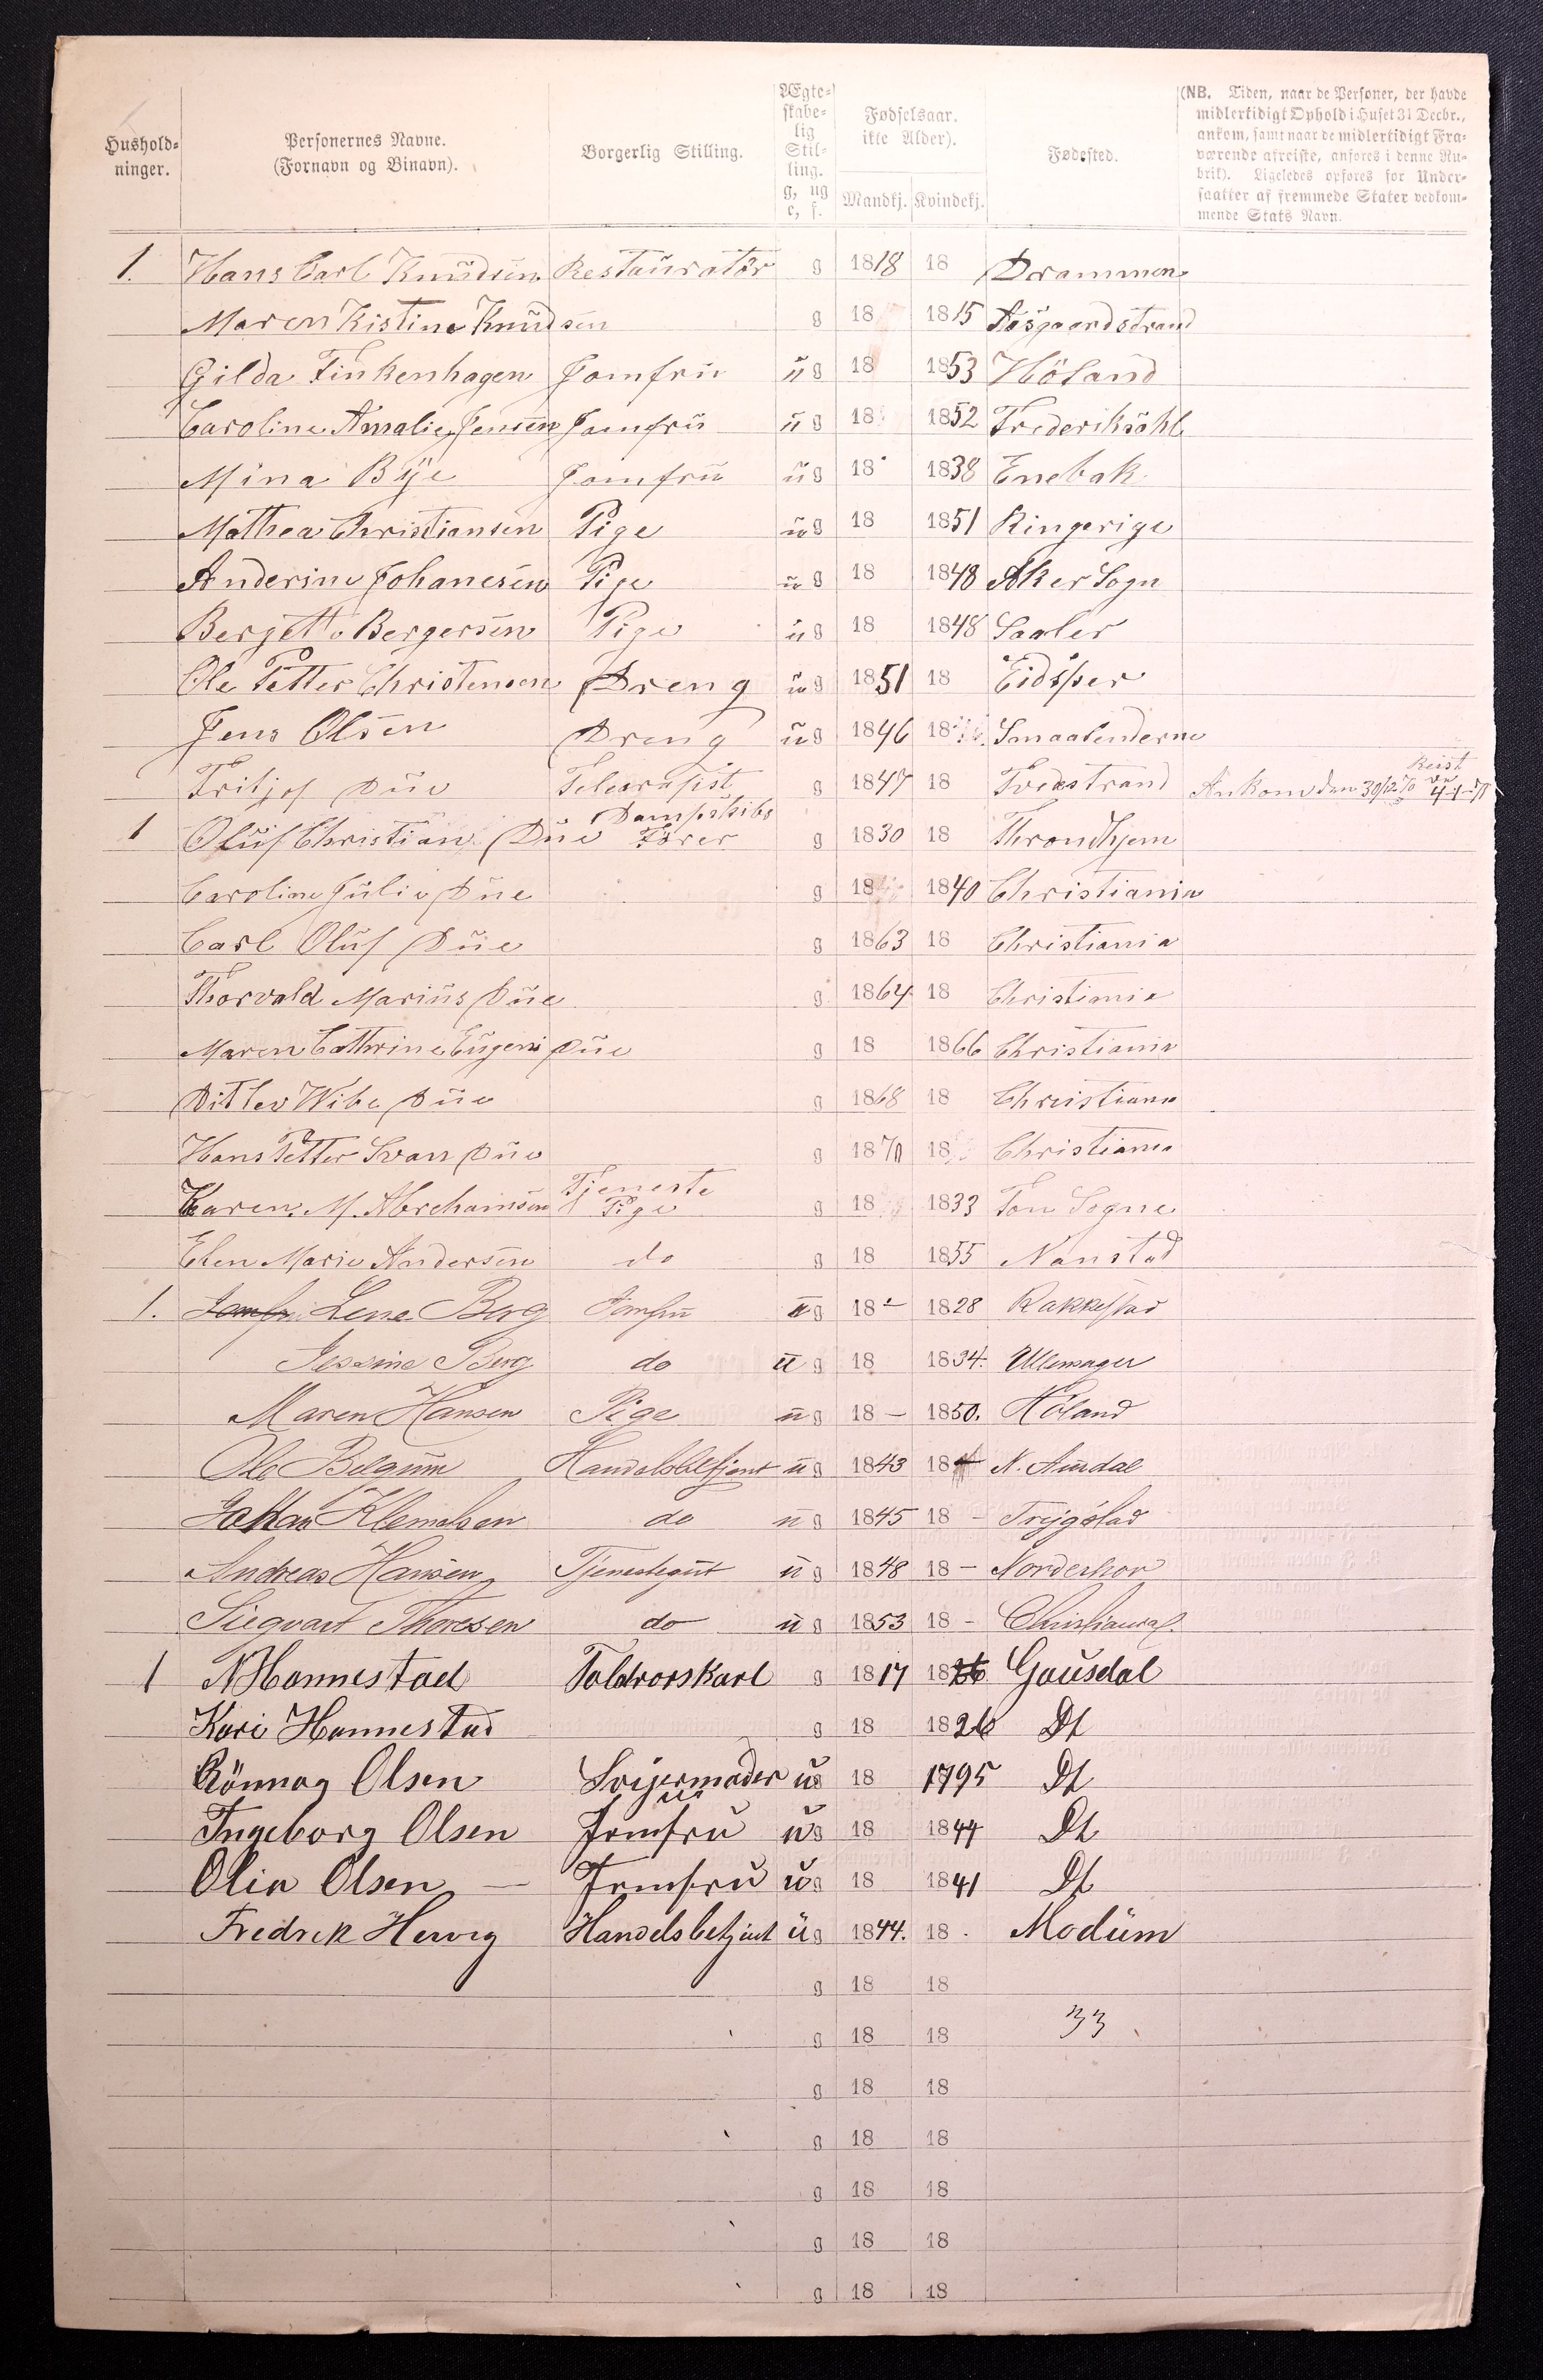 Hushold-
ninger.
Personernes Navne.
(Fornavn og Binavn).
Borgerlig Stilling.
Ægte-
skabe-
lig
Stil-
ling.
g, ug
e, f.
Fødselsaar.
ikke Alder).
Mandkj. Kvindekj.
Fødested.
(NB. Tiden, naar de Personer, der havde
midlertidigt Ophold i Huset 31 Decbr.,
ankom, samt naar de midlertidigt Fra-
værende afreiste, anføres i denne Ru-
brik). Ligeledes opføres for Under-
saatter af fremmede Stater vedkom-
mende Stats Navn.
1. Hans Carl Knudsen Restauratör g 1818 18 Drammen
Maren Kistine Knudsen g 18 1815 Aasgaardstrand
Gilda Finkenhagen Jomfru ug 18 1853 Höland
Caroline Amalie Jensen Jomfru ug 18 1852 Frederikshl
Mina Bye Jomfru ug 18 1838 Enebak
Mathea Christiansen Pige ug 18 1851 Ringerige
Anderine Johanesen Pige ug 18 1848 Aker Sogn
Berjette Bergersen Pige ug 18 1848 Saaler
Ole Petter Christensen Dreng ug 1851 18 Eidsper
Jens Olsen Dreng ug 1846 18 Smaalenderne
Fritjof Due Telegrafist g 1847 18 Tvedestrand Ankom den 30/12 70 Reist den 4-1-71
1 Oluf Christian Due Dampskibs Förer g 1830 18 Throndhjem
Caroline Julie Due g 18 1840 Christiania
Carl Oluf Due g 1863 18 Christiania
Thorvald Marius Due g 1864 18 Christiania
Maren Cathrine Eugeni Due g 18 1866 Christiania
Ditlev Wibe Due g 1868 18 Christiana
Hans Petter Svan Due g 1870 18 Christiania
Karen M. Abrehamsen Tjeneste Pige g 18 1833 Ton Sogne
Elen Marie Andersen do g 18 1855 Nanstad
1. Jomfru Lene Berg Jomfru ug 18 - 1828 Rakkestad
Jessine Berg do ug 18 1834. Ullensager
Maren Hansen Pige ug 18 - 1850. Höland
Ole Belgum Handelsbetjent ug 1843 18 N. Aurdal
Johan Klemetsen do ug 1845 18 - Trygstad
Andreas Hansen Tjenestegut ug 1848 18 - Norderhov
Siegvart Thoresen do ug 1853 18 - Christiania
1 N Hannestad Toldvorskarl g 1817 1826 Gausdal
Kari Hannestad g 18 1826 Dt
Rönnog Olsen Svijermoder ug 18 1795 Dt
Ingeborg Olsen Jomfru ug 18 1844 Dt
Olia Olsen — Jomfru ug 18 1841 Dt
Fredrik Hervig Handelsbetjent ug 1844. 18 Modum
g 18 18
g 18 18 33
g 18 18
g 18 18
g 18 18
g 18 18
g 18 18